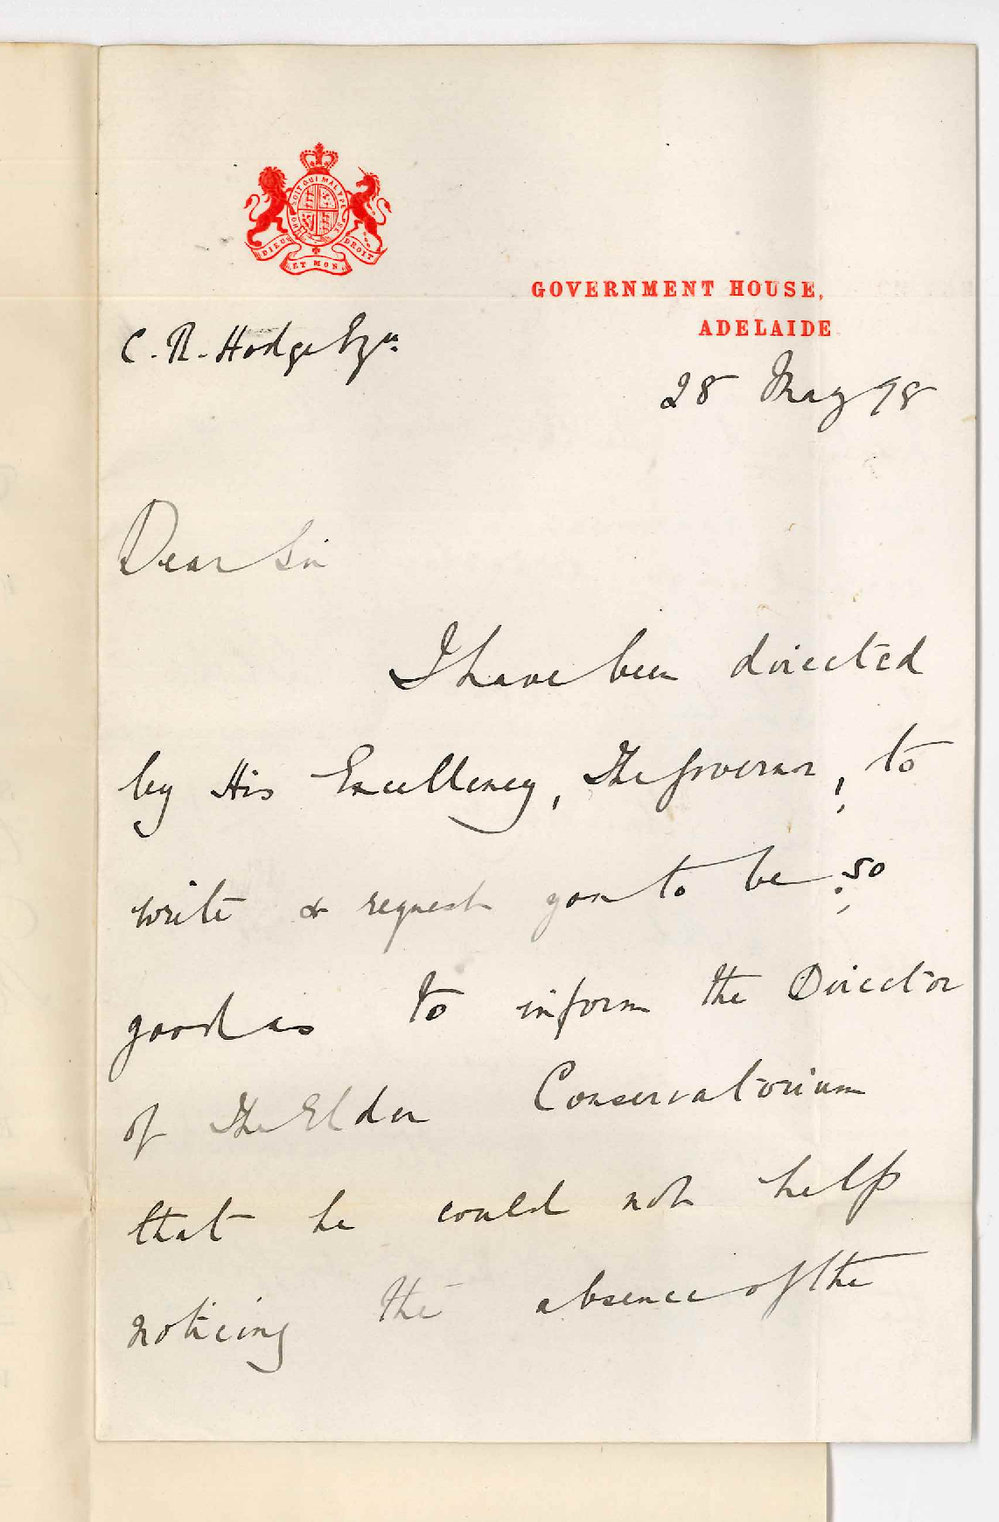 HONI SOIT QUI MAL Y PENSE
DIEU ET MON DROIT
GOVERNMENT HOUSE,
ADELAIDE
C. R. Hodge Esqre.
28 May 98
Dear Sir
I have been directed
by His Excellency, The Governor, to
write & request you to be so
good as to inform the Director
of The Elder Conservatorium
that he could not help
noticing the absence of the